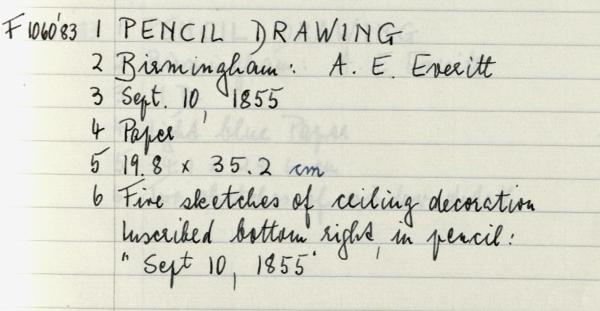 F1060'83 1 PENCIL DRAWING
2 Birmingham: A. E. Everitt
3 Sept. 10, 1855
4 Paper
5 19.8 x 35.2 cm
6 Five sketches of ceiling decoration
Inscribed bottom right, in pencil:
"Sept 10, 1855"